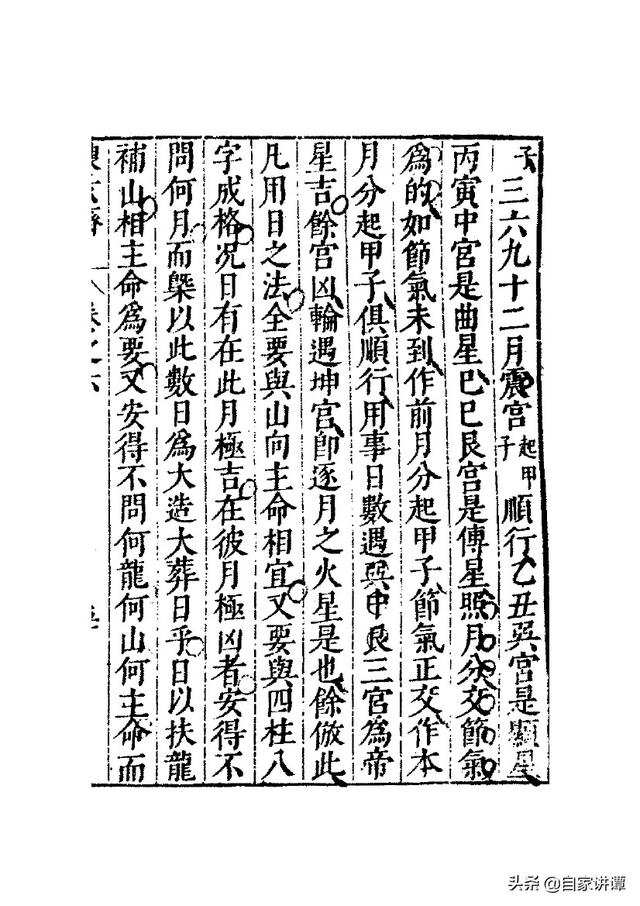 子
三六九十二月震宮起甲子順行乙丑巽宮是顯星
丙寅中宮是曲星巳巳艮宮是傳星照月分交節氣
為的如節氣未到作前月分起甲子節氣正交作本
月分起甲子俱順行用事日數遇巽中艮三宮為帝
星吉餘宮凶輪遇坤宮卽逐月之火星是也餘倣此
凡用日之法全要與山向主命相宜又要與四柱八
字成格况日有在此月極吉在彼月極凶者安得不
問何月而槩以此數日為大造大葬日乎日以扶龍
補山相主命為要又安得不問何龍何山何主命而
卷之六
头条 @自家讲谭